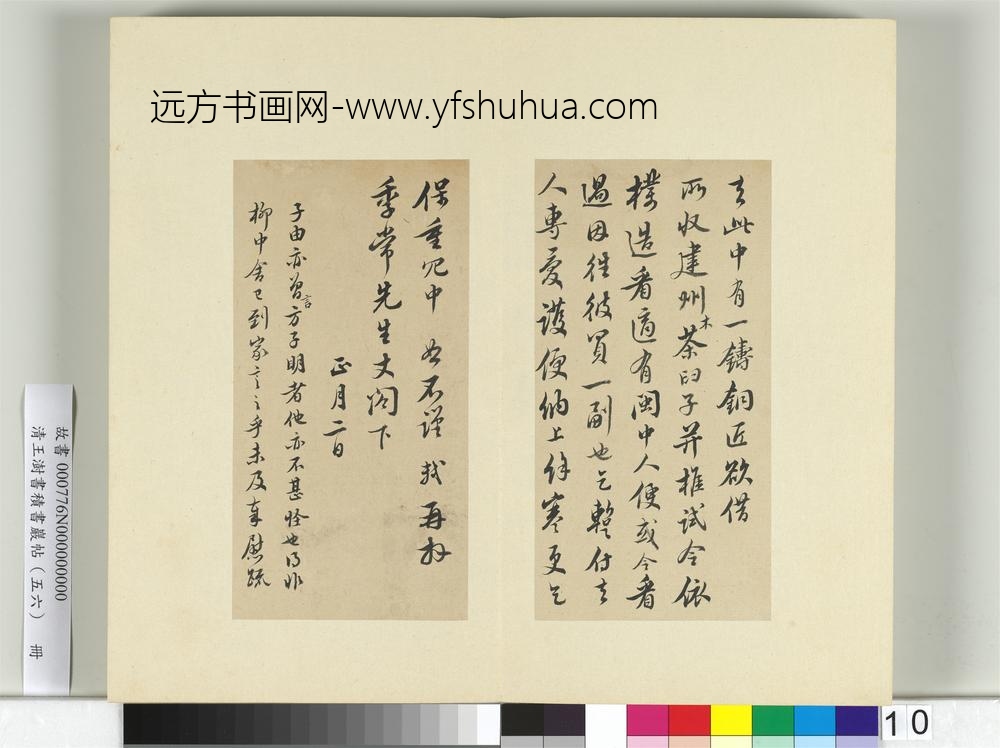 远方书画网-www.yfshuhua.com
去此中有一鑄銅匠欲借
所收建州木茶臼子并椎試令依
樣造看適有閩中人便或令看
過因往彼買一副也乞暫付去
人專愛護便納上餘寒更乞
保重冗中 恕不謹 軾再拜
季常先生丈閣下
正月二日
子由亦曾言方子明者他亦不甚怪也得非
柳中舍已到家言之乎未及奉慰疏
故書 000776N000000000
清王澍書積書巖帖(五六) 冊
10